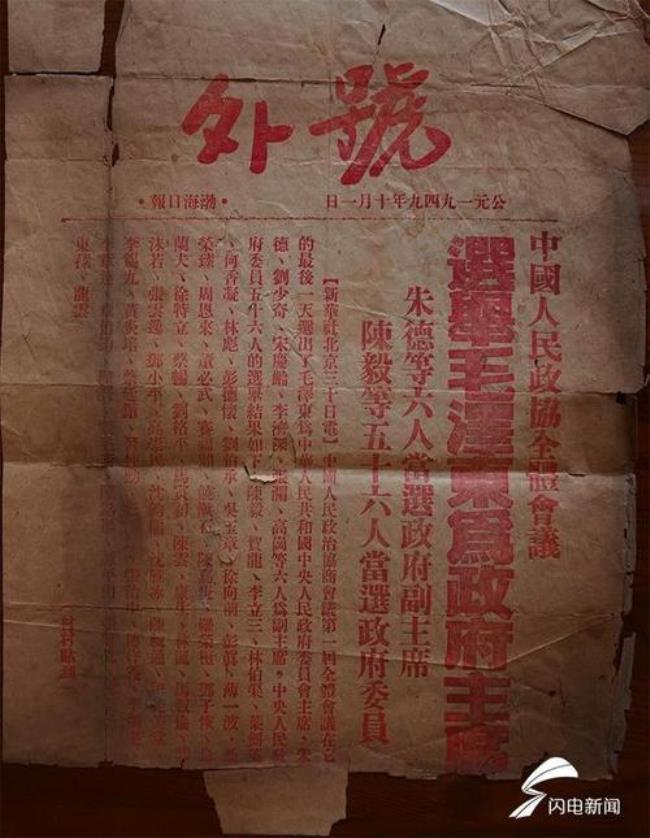 號外
公元一九四九年十月一日
•渤海日報•
中國人民政協全體會議
選舉毛澤東爲政府主席
朱德等六人當選政府副主席
陳毅等五十六人當選政府委員
【新華社北京三十日電】中國人民政治協商會議第一屆全體會議在它
的最後一天選出了毛澤東爲中華人民共和國中央人民政府委員會主席、朱
德、劉少奇、宋慶齡、李濟深、張瀾、高崗等六人爲副主席。中央人民政
府委員五十六人的選舉結果如下：陳毅、賀龍、李立三、林伯渠、葉劍英
、何香凝、林彪、彭德懷、劉伯承、吳玉章、徐向前、彭眞、薄一波、聶
榮臻、周恩來、董必武、賽福鼎、饒漱石、陳嘉庚、羅榮桓、鄧子恢、烏
蘭夫、徐特立、蔡暢、劉格平、馬寅初、陳雲、康生、林楓、馬叙倫、郭
沫若、張雲逸、鄧小平、高崇民、沈鈞儒、沈雁冰、陳叔通、
李錫九、黃炎培、蔡廷鍇、習仲勳、
東蓀、龍雲
閃电新闻